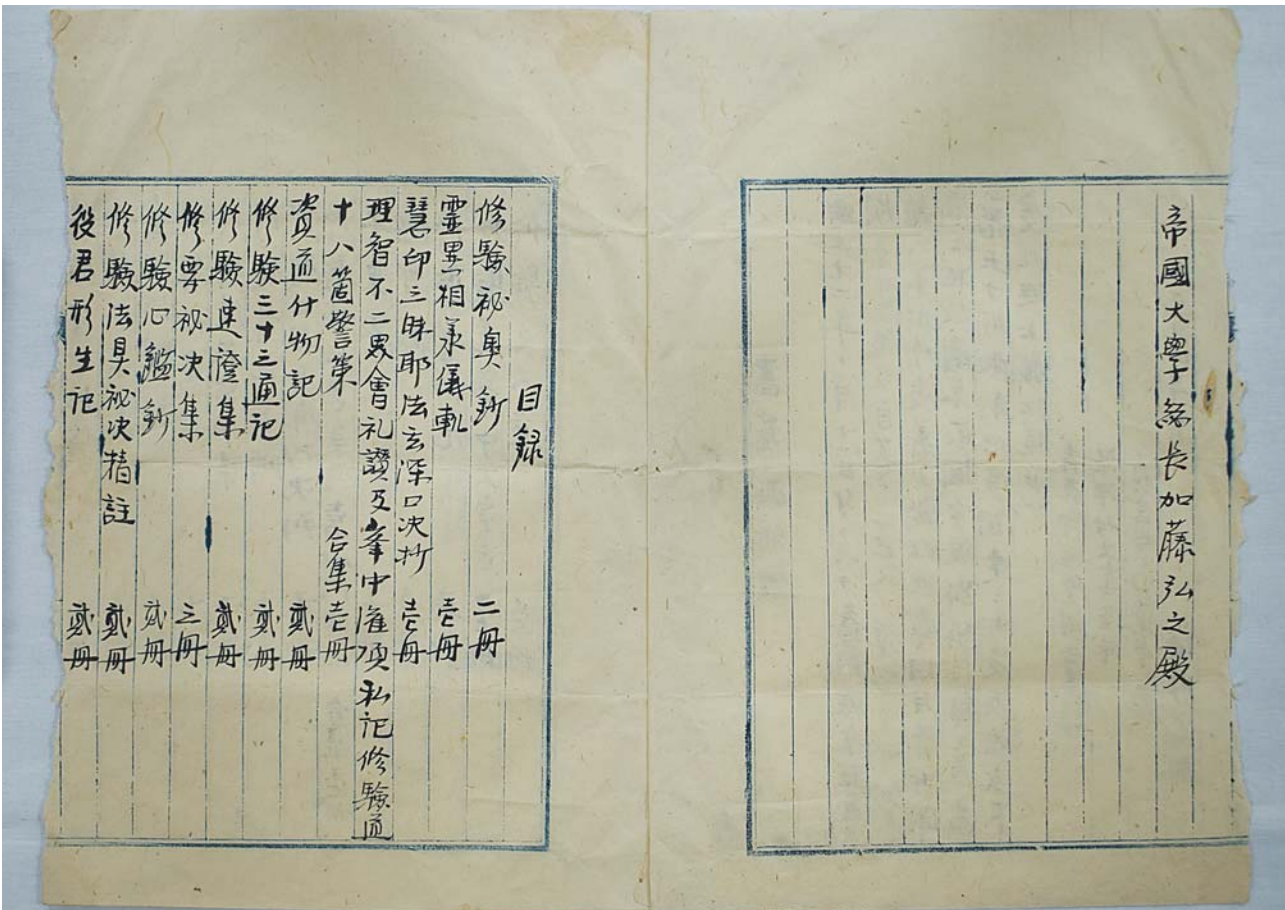 帝國大學総長加藤弘之殿
目録
修驗秘奥鈔 二冊
靈異相承儀軌 壱冊
慧印三昧耶法玄深口决抄 壱冊
理智不二界會礼讃及峯中潅頂私記修験道
十八箇警策 合集壱冊
資道什物記 貳冊
修驗三十三通記 貳冊
修驗速證集 貳冊
修要祕决集 三冊
修驗心鑑鈔 貳冊
修驗法具祕决精註 貳冊
役君形生記 貳冊